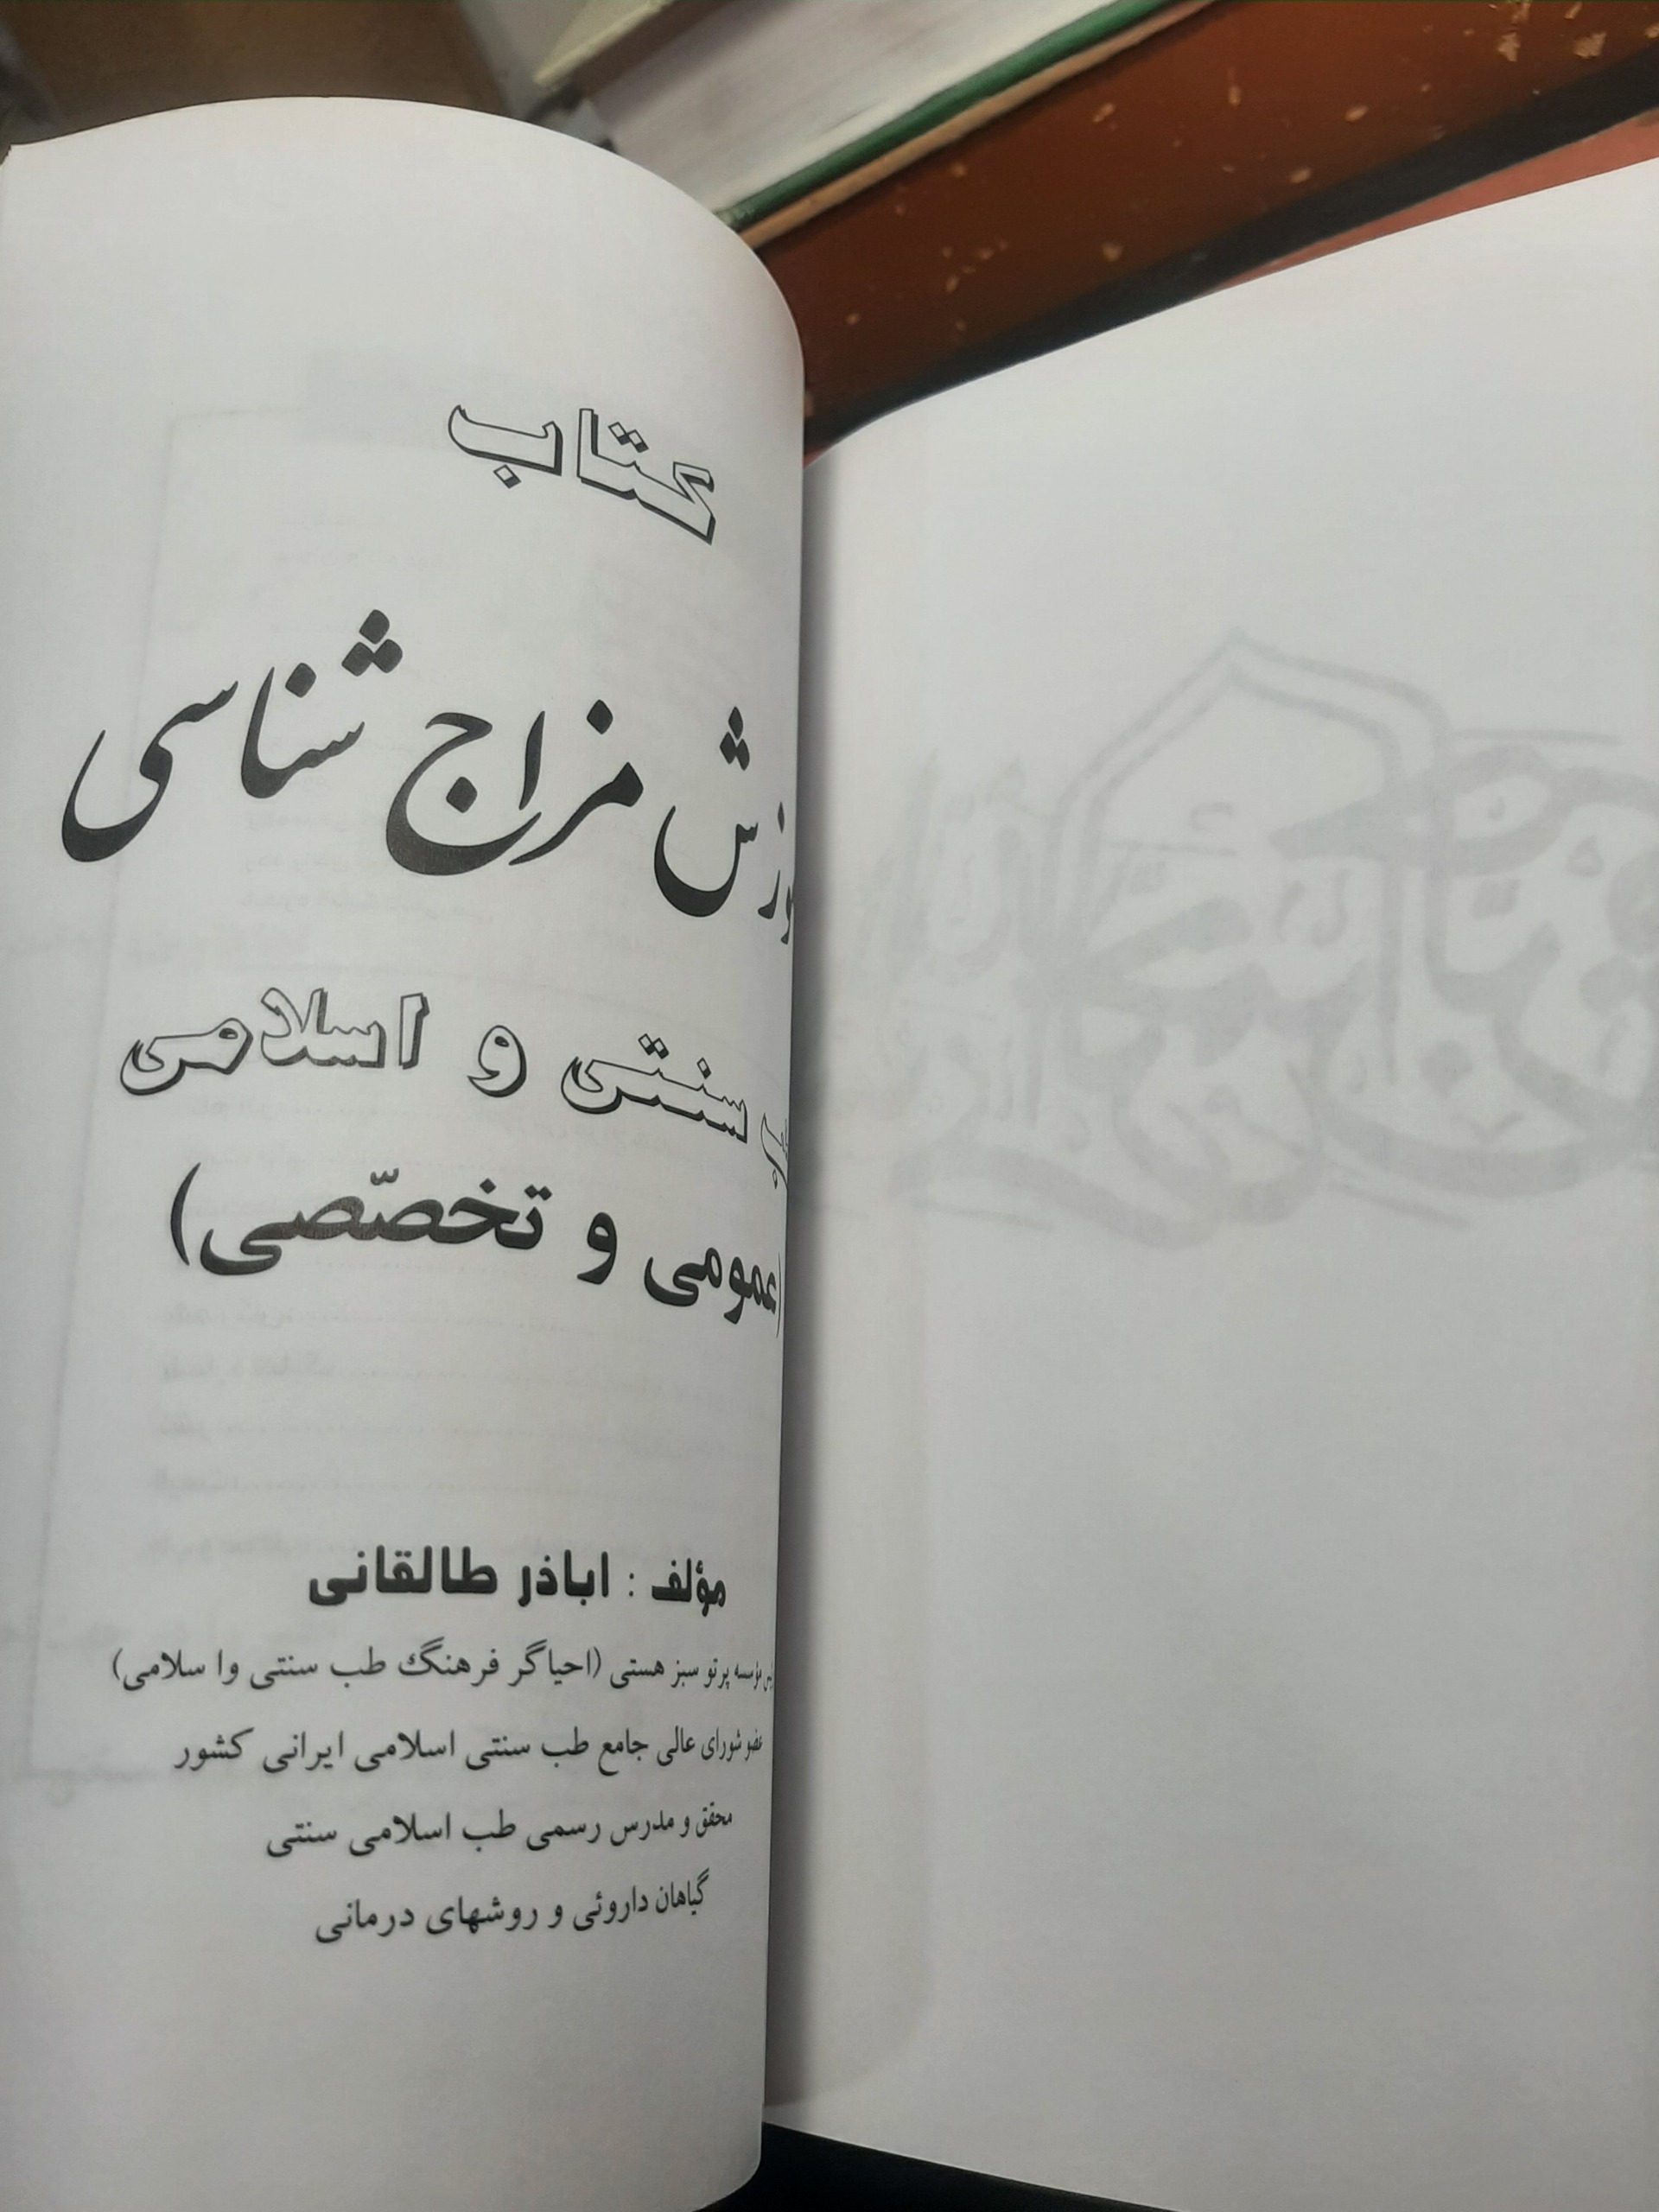 کتاب
وزش مزاج شناسی
ب سنتی و اسلامی
(عمومی و تخصّصی)
مؤلف : اباذر طالقانی
مؤسسه پرتو سبز هستی (احیاگر فرهنگ طب سنتی وا سلامی)
عضو شورای عالی جامع طب سنتی اسلامی ایرانی کشور
محقق و مدرس رسمی طب اسلامی سنتی
گیاهان داروئی و روشهای درمانی